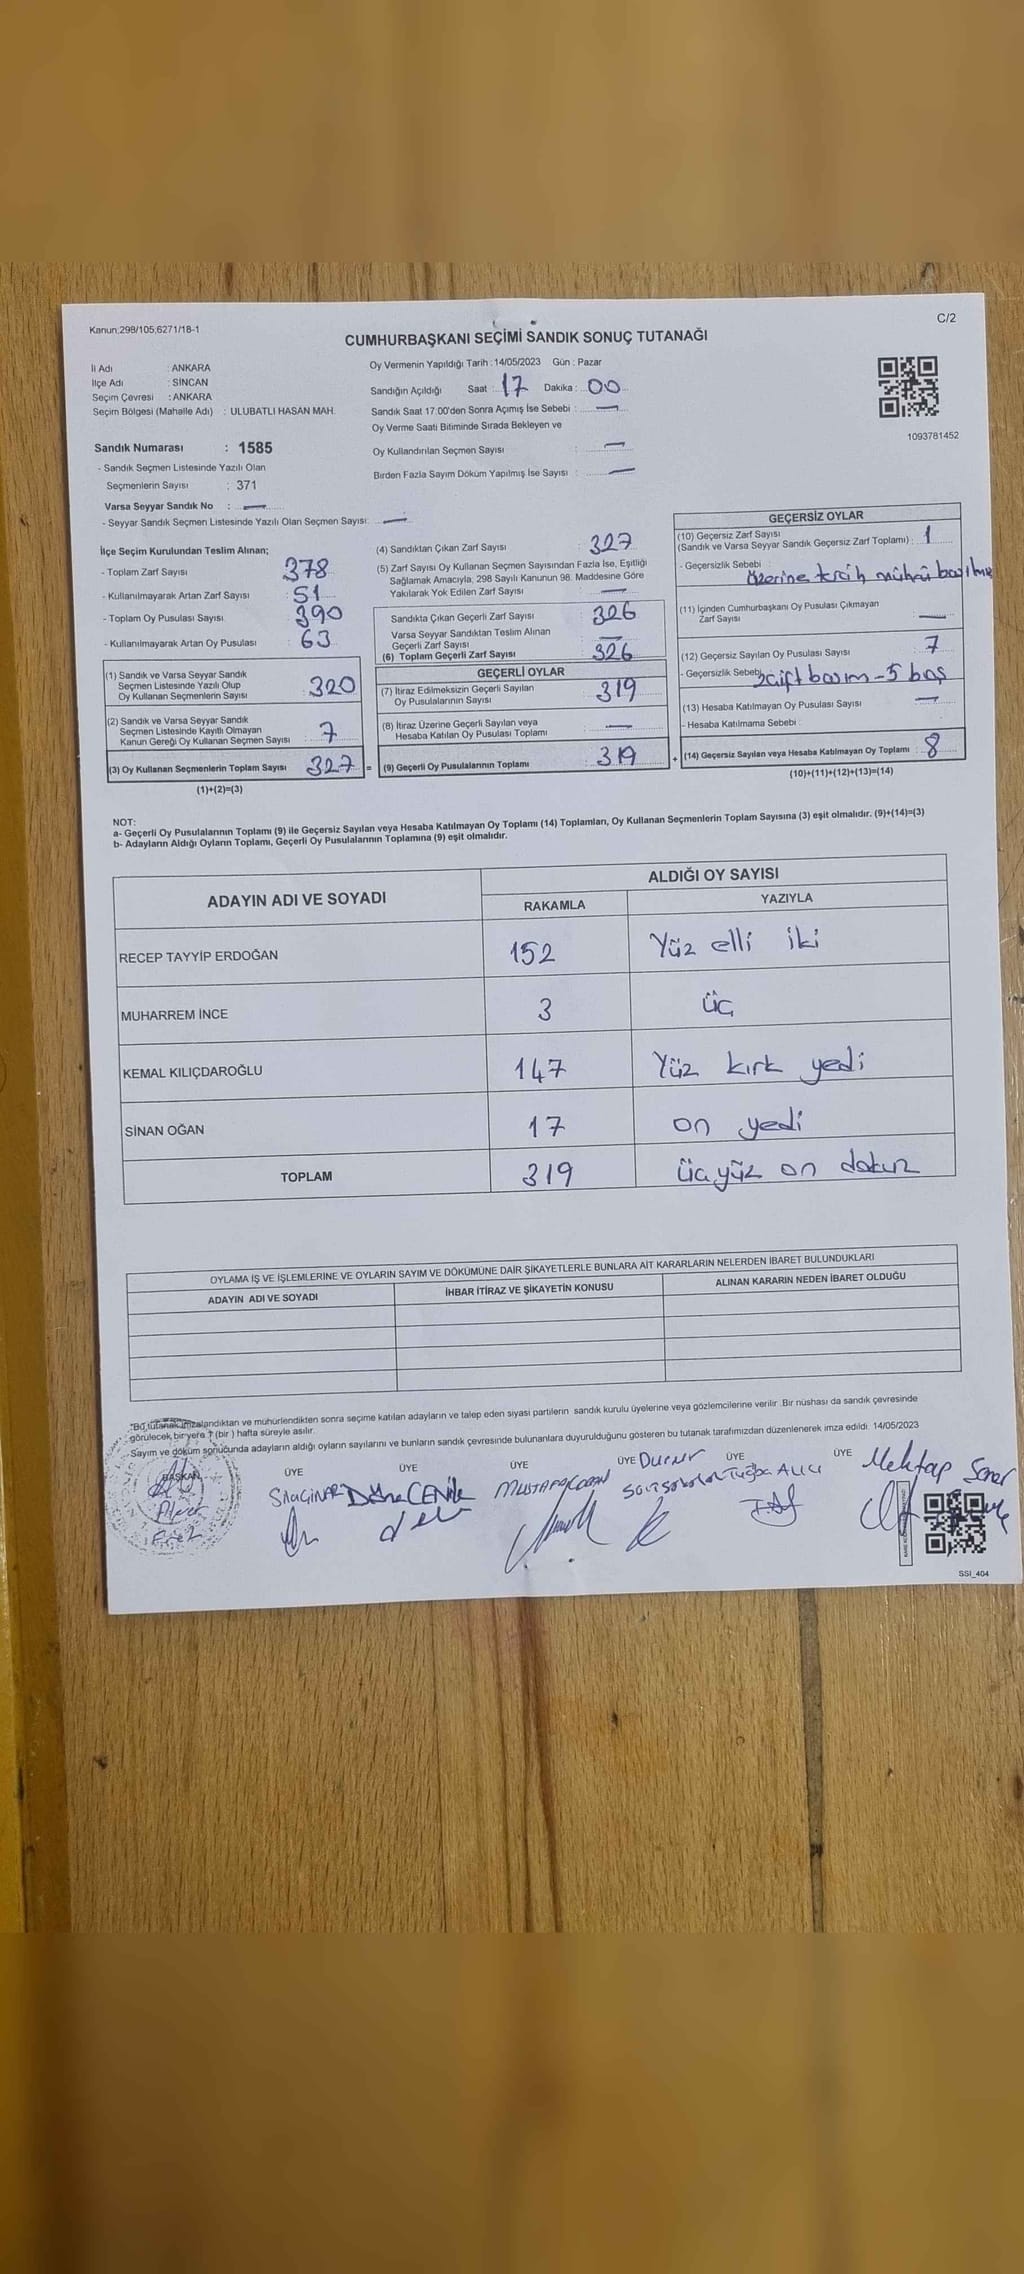 Kanun:298/105,6271/18-1
C/2
CUMHURBAŞKANI SEÇİMİ SANDIK SONUÇ TUTANAĞI
İl Adı : ANKARA
İlçe Adı : SİNCAN
Seçim Çevresi : ANKARA
Seçim Bölgesi (Mahalle Adı) : ULUBATLI HASAN MAH.
Oy Vermenin Yapıldığı Tarih : 14/05/2023 Gün : Pazar
Sandığın Açıldığı Saat : 17 Dakika : 00
Sandık Saat 17:00'den Sonra Açımış İse Sebebi : —
Oy Verme Saati Bitiminde Sırada Bekleyen ve
Oy Kullandırılan Seçmen Sayısı : —
Birden Fazla Sayım Döküm Yapılmış İse Sayısı : —
1093781452
Sandık Numarası : 1585
- Sandık Seçmen Listesinde Yazılı Olan
Seçmenlerin Sayısı : 371
Varsa Seyyar Sandık No : —
- Seyyar Sandık Seçmen Listesinde Yazılı Olan Seçmen Sayısı: —
İlçe Seçim Kurulundan Teslim Alınan;
- Toplam Zarf Sayısı : 378
- Kullanılmayarak Artan Zarf Sayısı : 51
- Toplam Oy Pusulası Sayısı : 390
- Kullanılmayarak Artan Oy Pusulası : 63
(1) Sandık ve Varsa Seyyar Sandık
Seçmen Listesinde Yazılı Olup
Oy Kullanan Seçmenlerin Sayısı : 320
(2) Sandık ve Varsa Seyyar Sandık
Seçmen Listesinde Kayıtlı Olmayan
Kanun Gereği Oy Kullanan Seçmen Sayısı : 7
(3) Oy Kullanan Seçmenlerin Toplam Sayısı : 327 =
(1)+(2)=(3)
(4) Sandıktan Çıkan Zarf Sayısı : 327
(5) Zarf Sayısı Oy Kullanan Seçmen Sayısından Fazla İse, Eşitliği
Sağlamak Amacıyla; 298 Sayılı Kanunun 98. Maddesine Göre
Yakılarak Yok Edilen Zarf Sayısı : —
Sandıkta Çıkan Geçerli Zarf Sayısı : 326
Varsa Seyyar Sandıktan Teslim Alınan
Geçerli Zarf Sayısı : —
(6) Toplam Geçerli Zarf Sayısı : 326
GEÇERLİ OYLAR
(7) İtiraz Edilmeksizin Geçerli Sayılan
Oy Pusulalarının Sayısı : 319
(8) İtiraz Üzerine Geçerli Sayılan veya
Hesaba Katılan Oy Pusulası Toplamı : —
(9) Geçerli Oy Pusulalarının Toplamı : 319 +
GEÇERSİZ OYLAR
(10) Geçersiz Zarf Sayısı
(Sandık ve Varsa Seyyar Sandık Geçersiz Zarf Toplamı) : 1
- Geçersizlik Sebebi :
üzerine tercih mührü basılmış
(11) İçinden Cumhurbaşkanı Oy Pusulası Çıkmayan
Zarf Sayısı : —
(12) Geçersiz Sayılan Oy Pusulası Sayısı : 7
- Geçersizlik Sebebi: 2 çift basım - 5 boş
(13) Hesaba Katılmayan Oy Pusulası Sayısı : —
- Hesaba Katılmama Sebebi :
(14) Geçersiz Sayılan veya Hesaba Katılmayan Oy Toplamı : 8
(10)+(11)+(12)+(13)=(14)
NOT:
a- Geçerli Oy Pusulalarının Toplamı (9) ile Geçersiz Sayılan veya Hesaba Katılmayan Oy Toplamı (14) Toplamları, Oy Kullanan Seçmenlerin Toplam Sayısına (3) eşit olmalıdır. (9)+(14)=(3)
b- Adayların Aldığı Oyların Toplamı, Geçerli Oy Pusulalarının Toplamına (9) eşit olmalıdır.
ADAYIN ADI VE SOYADI
ALDIĞI OY SAYISI
RAKAMLA YAZIYLA
RECEP TAYYİP ERDOĞAN 152 Yüz elli iki
MUHARREM İNCE 3 üç
KEMAL KILIÇDAROĞLU 147 Yüz kırk yedi
SİNAN OĞAN 17 on yedi
TOPLAM 319 üçyüz on dokuz
OYLAMA İŞ VE İŞLEMLERİNE VE OYLARIN SAYIM VE DÖKÜMÜNE DAİR ŞİKAYETLERLE BUNLARA AİT KARARLARIN NELERDEN İBARET BULUNDUKLARI
ADAYIN ADI VE SOYADI İHBAR İTİRAZ VE ŞİKAYETİN KONUSU ALINAN KARARIN NEDEN İBARET OLDUĞU
*Bu tutanak imzalandıktan ve mühürlendikten sonra seçime katılan adayların ve talep eden siyasi partilerin sandık kurulu üyelerine veya gözlemcilerine verilir. Bir nüshası da sandık çevresinde
görülecek bir yere 1 (bir) hafta süreyle asılır.
Sayım ve döküm sonucunda adayların aldığı oyların sayılarını ve bunların sandık çevresinde bulunanlara duyurulduğunu gösteren bu tutanak tarafımızdan düzenlenerek imza edildi. 14/05/2023
BAŞKAN ÜYE ÜYE ÜYE ÜYE ÜYE ÜYE
Tuğba Alıcı Mehtap
SSI_404